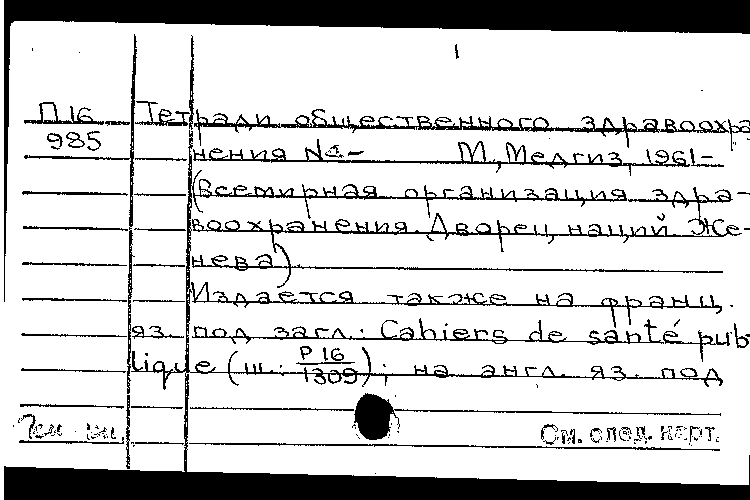 1
П16 Тетради общественного здравоохра
985 нения №- М., Медгиз, 1961-
(Всемирная организация здра-
воохранения. Дворец наций Же-
нева)
Издается также на франц.
яз. под загл.: Cahiers de santé pub
lique (ш.: P16/1309); на англ. яз. под
См. след. карт.